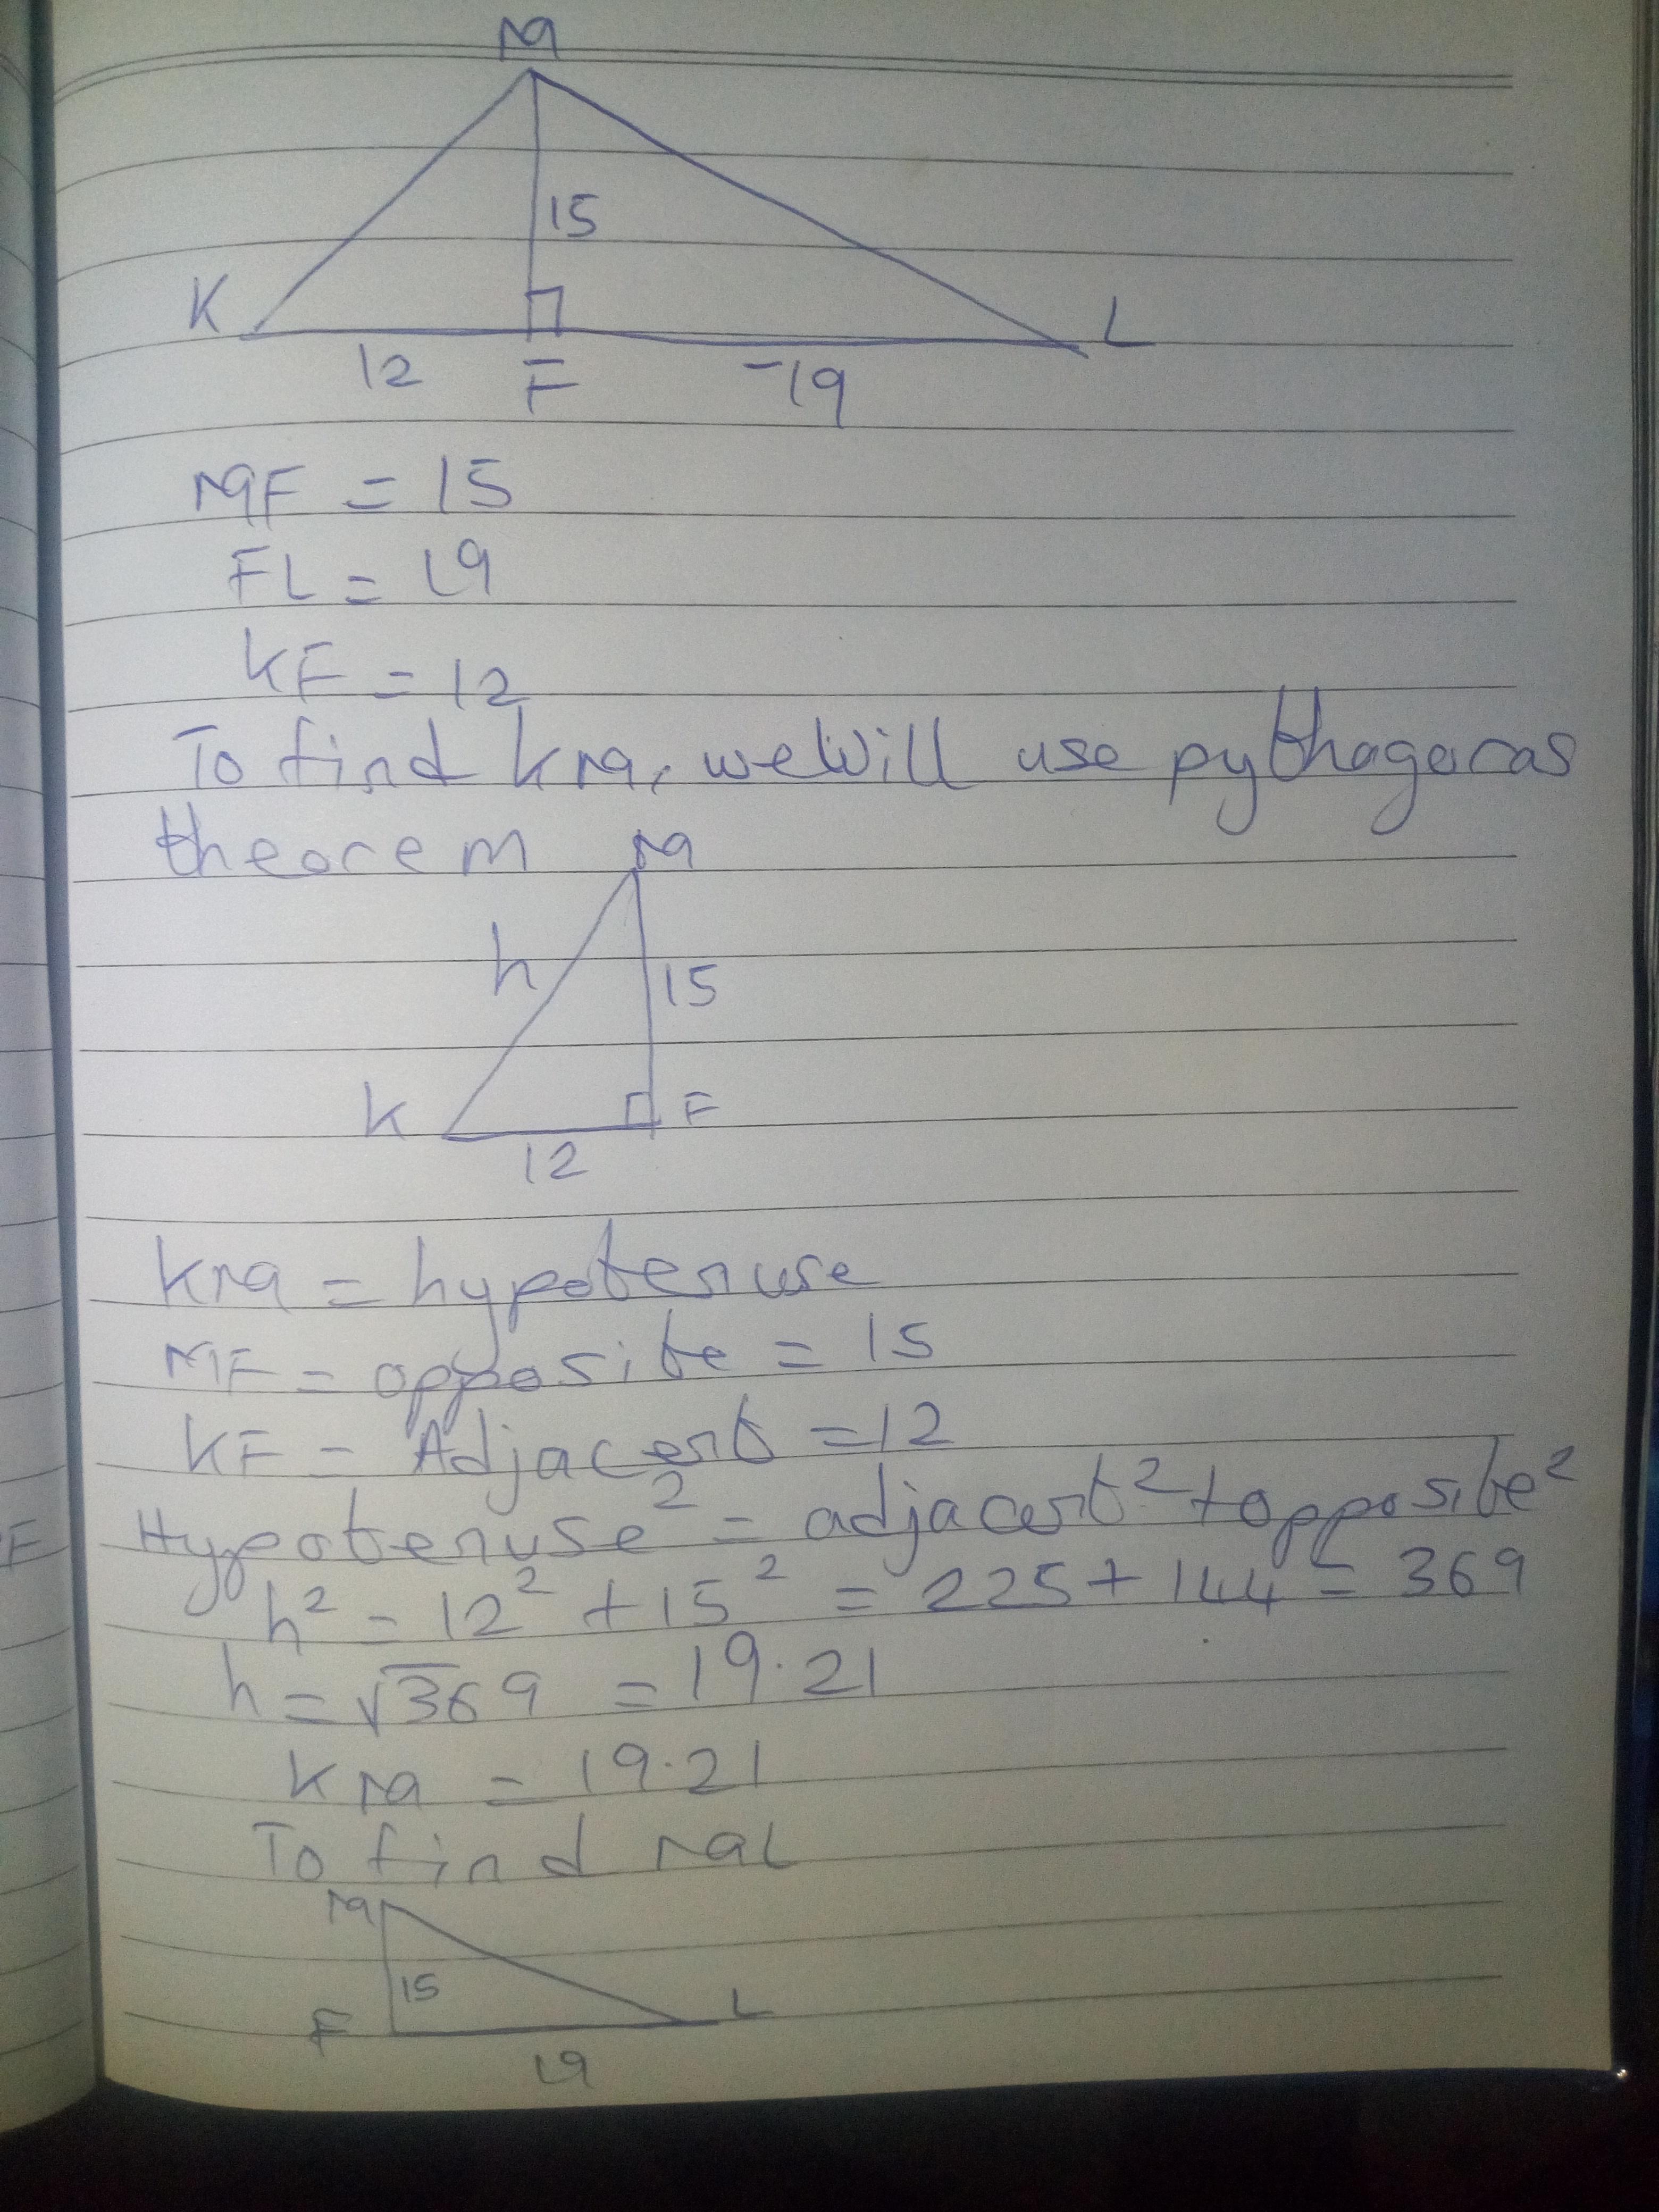 M
15
K L
12 F 19
MF = 15
FL = 19
KF = 12
To find KM, we will use pythagoras
theorem M
h 15
K F
12
KM = hypotenuse
MF = opposite = 15
KF = Adjacent = 12
Hypotenuse² = adjacent² + opposite²
h² = 12² + 15² = 225 + 144 = 369
h = √369 = 19.21
KM = 19.21
To find ML
M
15
F L
19